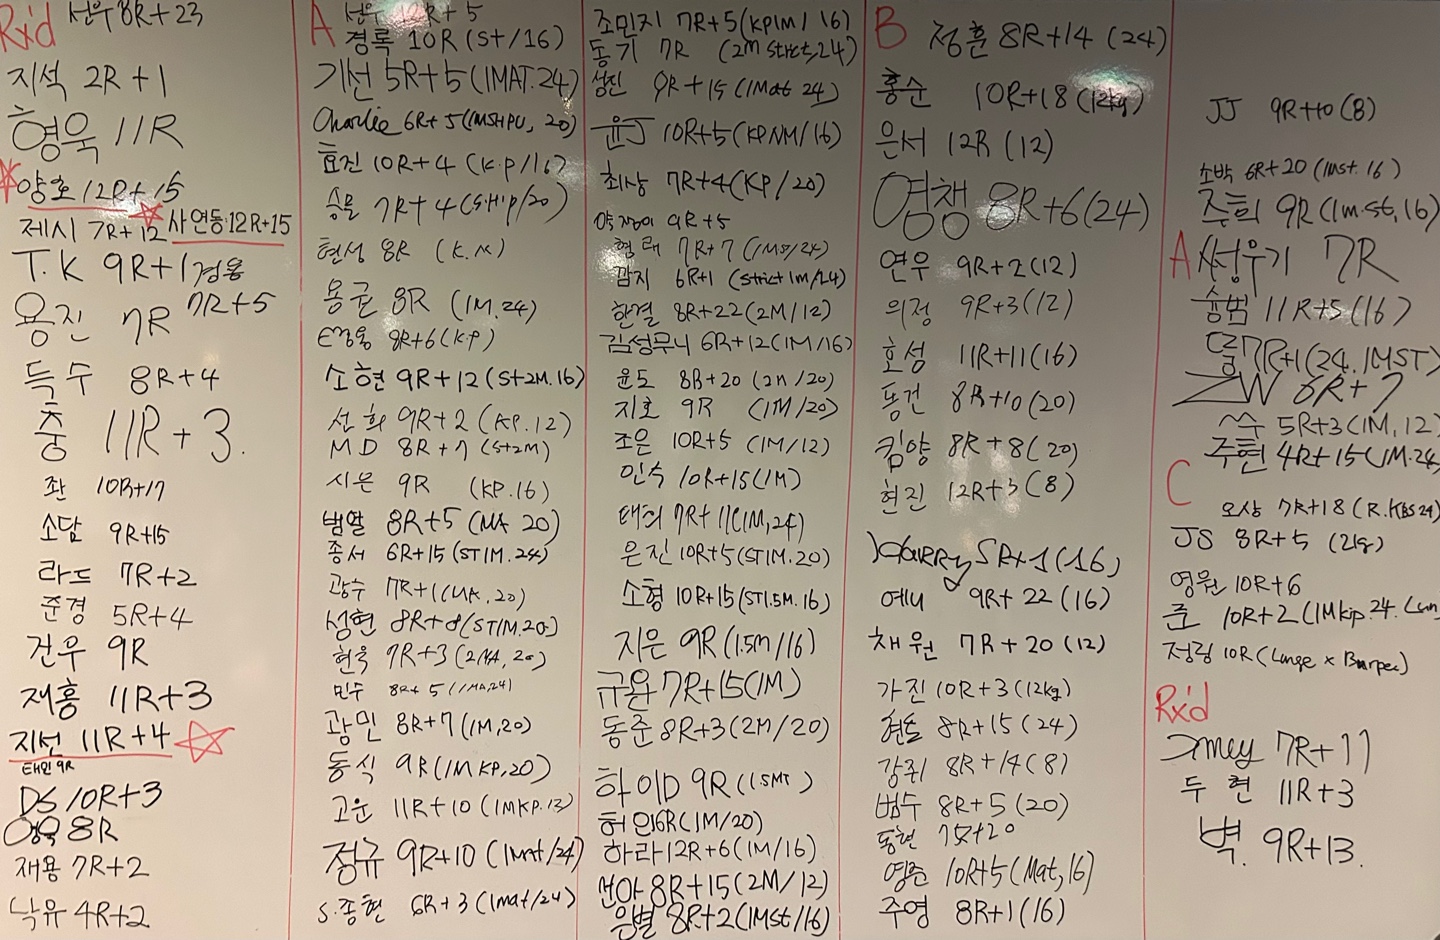 Rx'd 선우 8R+23
지석 2R+1
형욱 11R
양호 12R+15
제시 7R+12 사연동:12R+15
T.K 9R+1 경용
용진 7R 7R+5
득수 8R+4
중 11R+3.
좐 10R+17
소담 9R+15
라드 7R+2
준경 5R+4
건우 9R
재홍 11R+3
지선 11R+4
태민 9R
DS 10R+3
8R
재용 7R+2
낙유 4R+2
A
경록 10R (St/16)
기선 5R+5 (1MAT.24)
Charlie 6R+5 (1MSHPU, 20)
효진 10R+4 (K.P/16)
승률 7R+4 (S.H.P/20)
현성 8R (K.N)
용균 8R (1M.24)
8R+6 (KP)
소현 9R+12 (St2M.16)
선희 9R+2 (KP.12)
MD 8R+7 (St2M)
시은 9R (KP.16)
범열 8R+5 (MA 20)
종서 6R+15 (ST1M.24)
광수 7R+1 (MA.20)
성현 8R+8 (ST1M.20)
현욱 9R+3 (2MA, 20)
민수 8R+5 (1MA,24)
광민 8R+7 (1M,20)
동식 9R (1M KP,20)
고운 11R+10 (1MKP.13)
정규 9R+10 (1Mat/24)
S.종현 6R+3 (1mat/24)
조민지 7R+5 (KP1M/16)
동기 7R (2M strict,24)
성진 9R+15 (1Mat 24)
윤J 10R+5 (KPNM/16)
최상 7R+4 (KP/20)
약쟁이 9R+5
형래 7R+7 (1MST/24)
깜지 6R+1 (strict 1m/24)
한결 8R+22 (2M/12)
김성무니 6R+12 (1M/16)
윤도 8R+20 (2M/20)
지호 9R (1M/20)
조은 10R+5 (1M/12)
민숙 10R+15 (1M)
태희 7R+11 (1M,24)
은진 10R+5 (ST1M.20)
소형 10R+15 (ST1.5M.16)
지은 9R (1.5m/16)
규용 7R+15 (1M)
동준 8R+3 (2M/20)
하이D 9R (1.5MT)
허인 6R (1M/20)
하라 12R+6 (1M/16)
선아 8R+15 (2M/12)
은별 8R+2 (1MSt/16)
B 정훈 8R+14 (24)
홍순 10R+18 (12kg)
은서 12R (12)
영챙 8R+6 (24)
연우 9R+2 (12)
의정 9R+3 (12)
호성 11R+11 (16)
동건 8R+10 (20)
킴양 8R+8 (20)
현진 12R+3 (8)
Harry 5R+1 (16)
예니 9R+22 (16)
채원 7R+20 (12)
가진 10R+3 (12kg)
8R+15 (24)
강쥐 8R+14 (8)
범수 8R+5 (20)
동현 7R+20
영준 10R+5 (Mat,16)
주영 8R+1 (16)
JJ 9R+10 (8)
소박 6R+20 (1mst.16)
주희 9R (1m.st,16)
A 성우기 7R
숭범 11R+5 (16)
7R+1 (24.1MST)
ZW 6R+7
^^수 5R+3 (1M,12)
주현 4R+15 (1M.24)
C
오상 7R+18 (R.KBS24)
JS 8R+5 (21g)
영원 10R+6
준 10R+2 (1Mkip.24.Lun
정링 10R (Lunge x Burpee)
Rx'd
7R+11
두현 11R+3
벽. 9R+13.